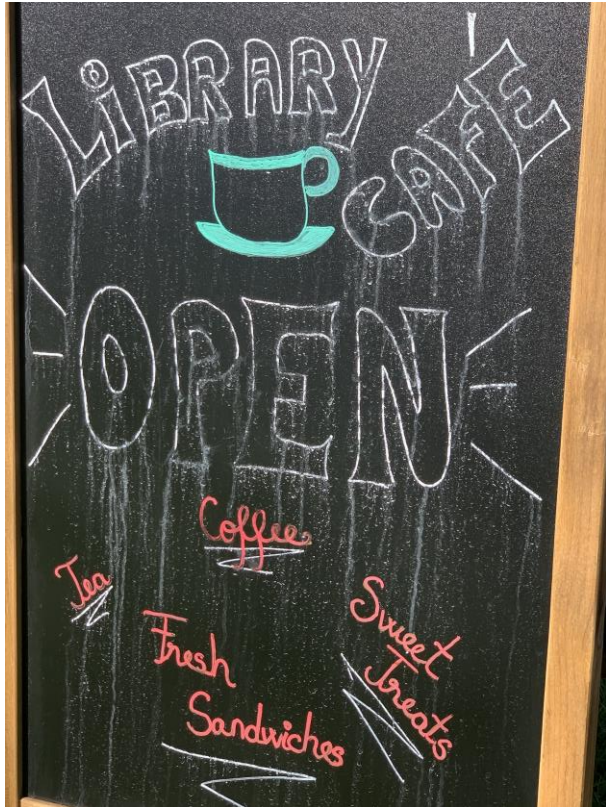 LiBRARY
CAFÉ
OPEN
Coffee
Tea
Fresh
Sandwiches
Sweet
Treats